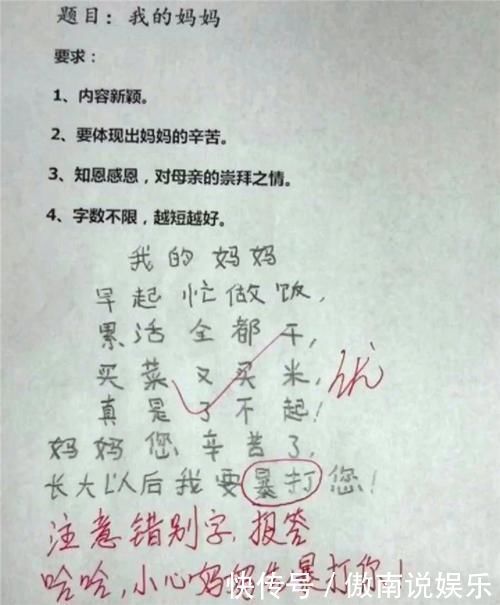 题目：我的妈妈
要求：
1、内容新颖。
2、要体现出妈妈的辛苦。
3、知恩感恩，对母亲的崇拜之情。
4、字数不限，越短越好。
我的妈妈
早起忙做饭，
累活全都干，
买菜又买米，
优
真是了不起！
妈妈您辛苦了，
长大以后我要暴打您！
注意错别字，报答
哈哈，小心妈妈先暴打你！
快传号／傲南说娱乐